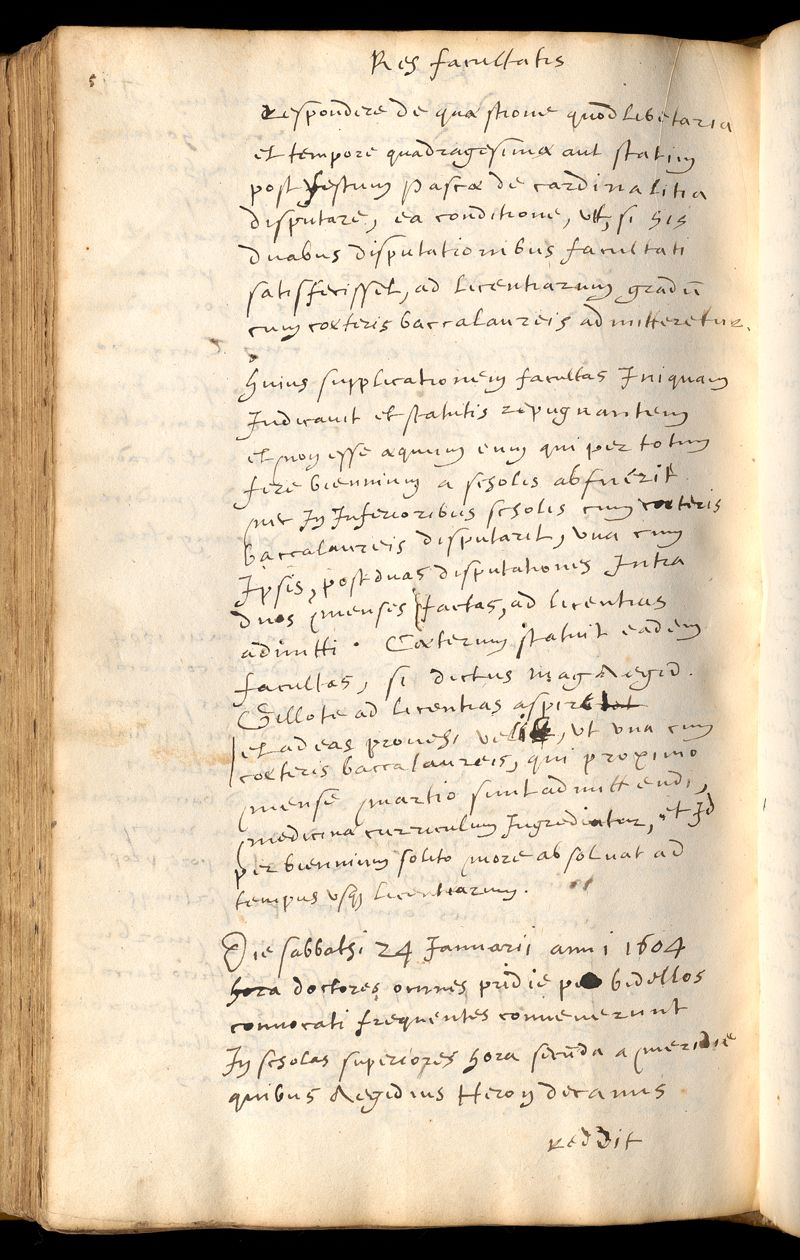 Res facultatis
5
respondere de quæstione quodlibetaria
et tempore quadragesimæ aut statim
post festum Pascæ de cardinalitia
disputare, ea conditione, ut, si his
duabus disputationibus facultati
satisfecisset, ad licentiarum gradū
cum cœteris baccalaureis admitteretur.
huius supplicationem facultas Iniquam
Iudicavit et statutis repugnantem
et non esse æquum eum qui per totum
fere biennium a scholis abfuerit
nec In Inferioribus scholis cum cœteris
baccalaureis disputarit, una cum
Ipsis, post duas disputationes Intra
duos menses factas, ad licentias
admitti. Cœterum statuit eadem
facultas, si dictus mag Aegid.
Gillote ad licentias
et ad eas provehi velit, ut una cum
cœteris baccalaureis, qui proximo
mense martio sunt admittendi,
medicinæ curriculum Ingrediatur, et Id
per biennium solito more absolvat ad
tempus usq; licentiarum.
Die sabbathi 24 Ianuarii anni 1604
hora doctores omnes pridie per bidellos
convocati frequentes convenerunt
In scholas superiores hora secūda a meridie
quibus Aegidius Heron decanus
reddit